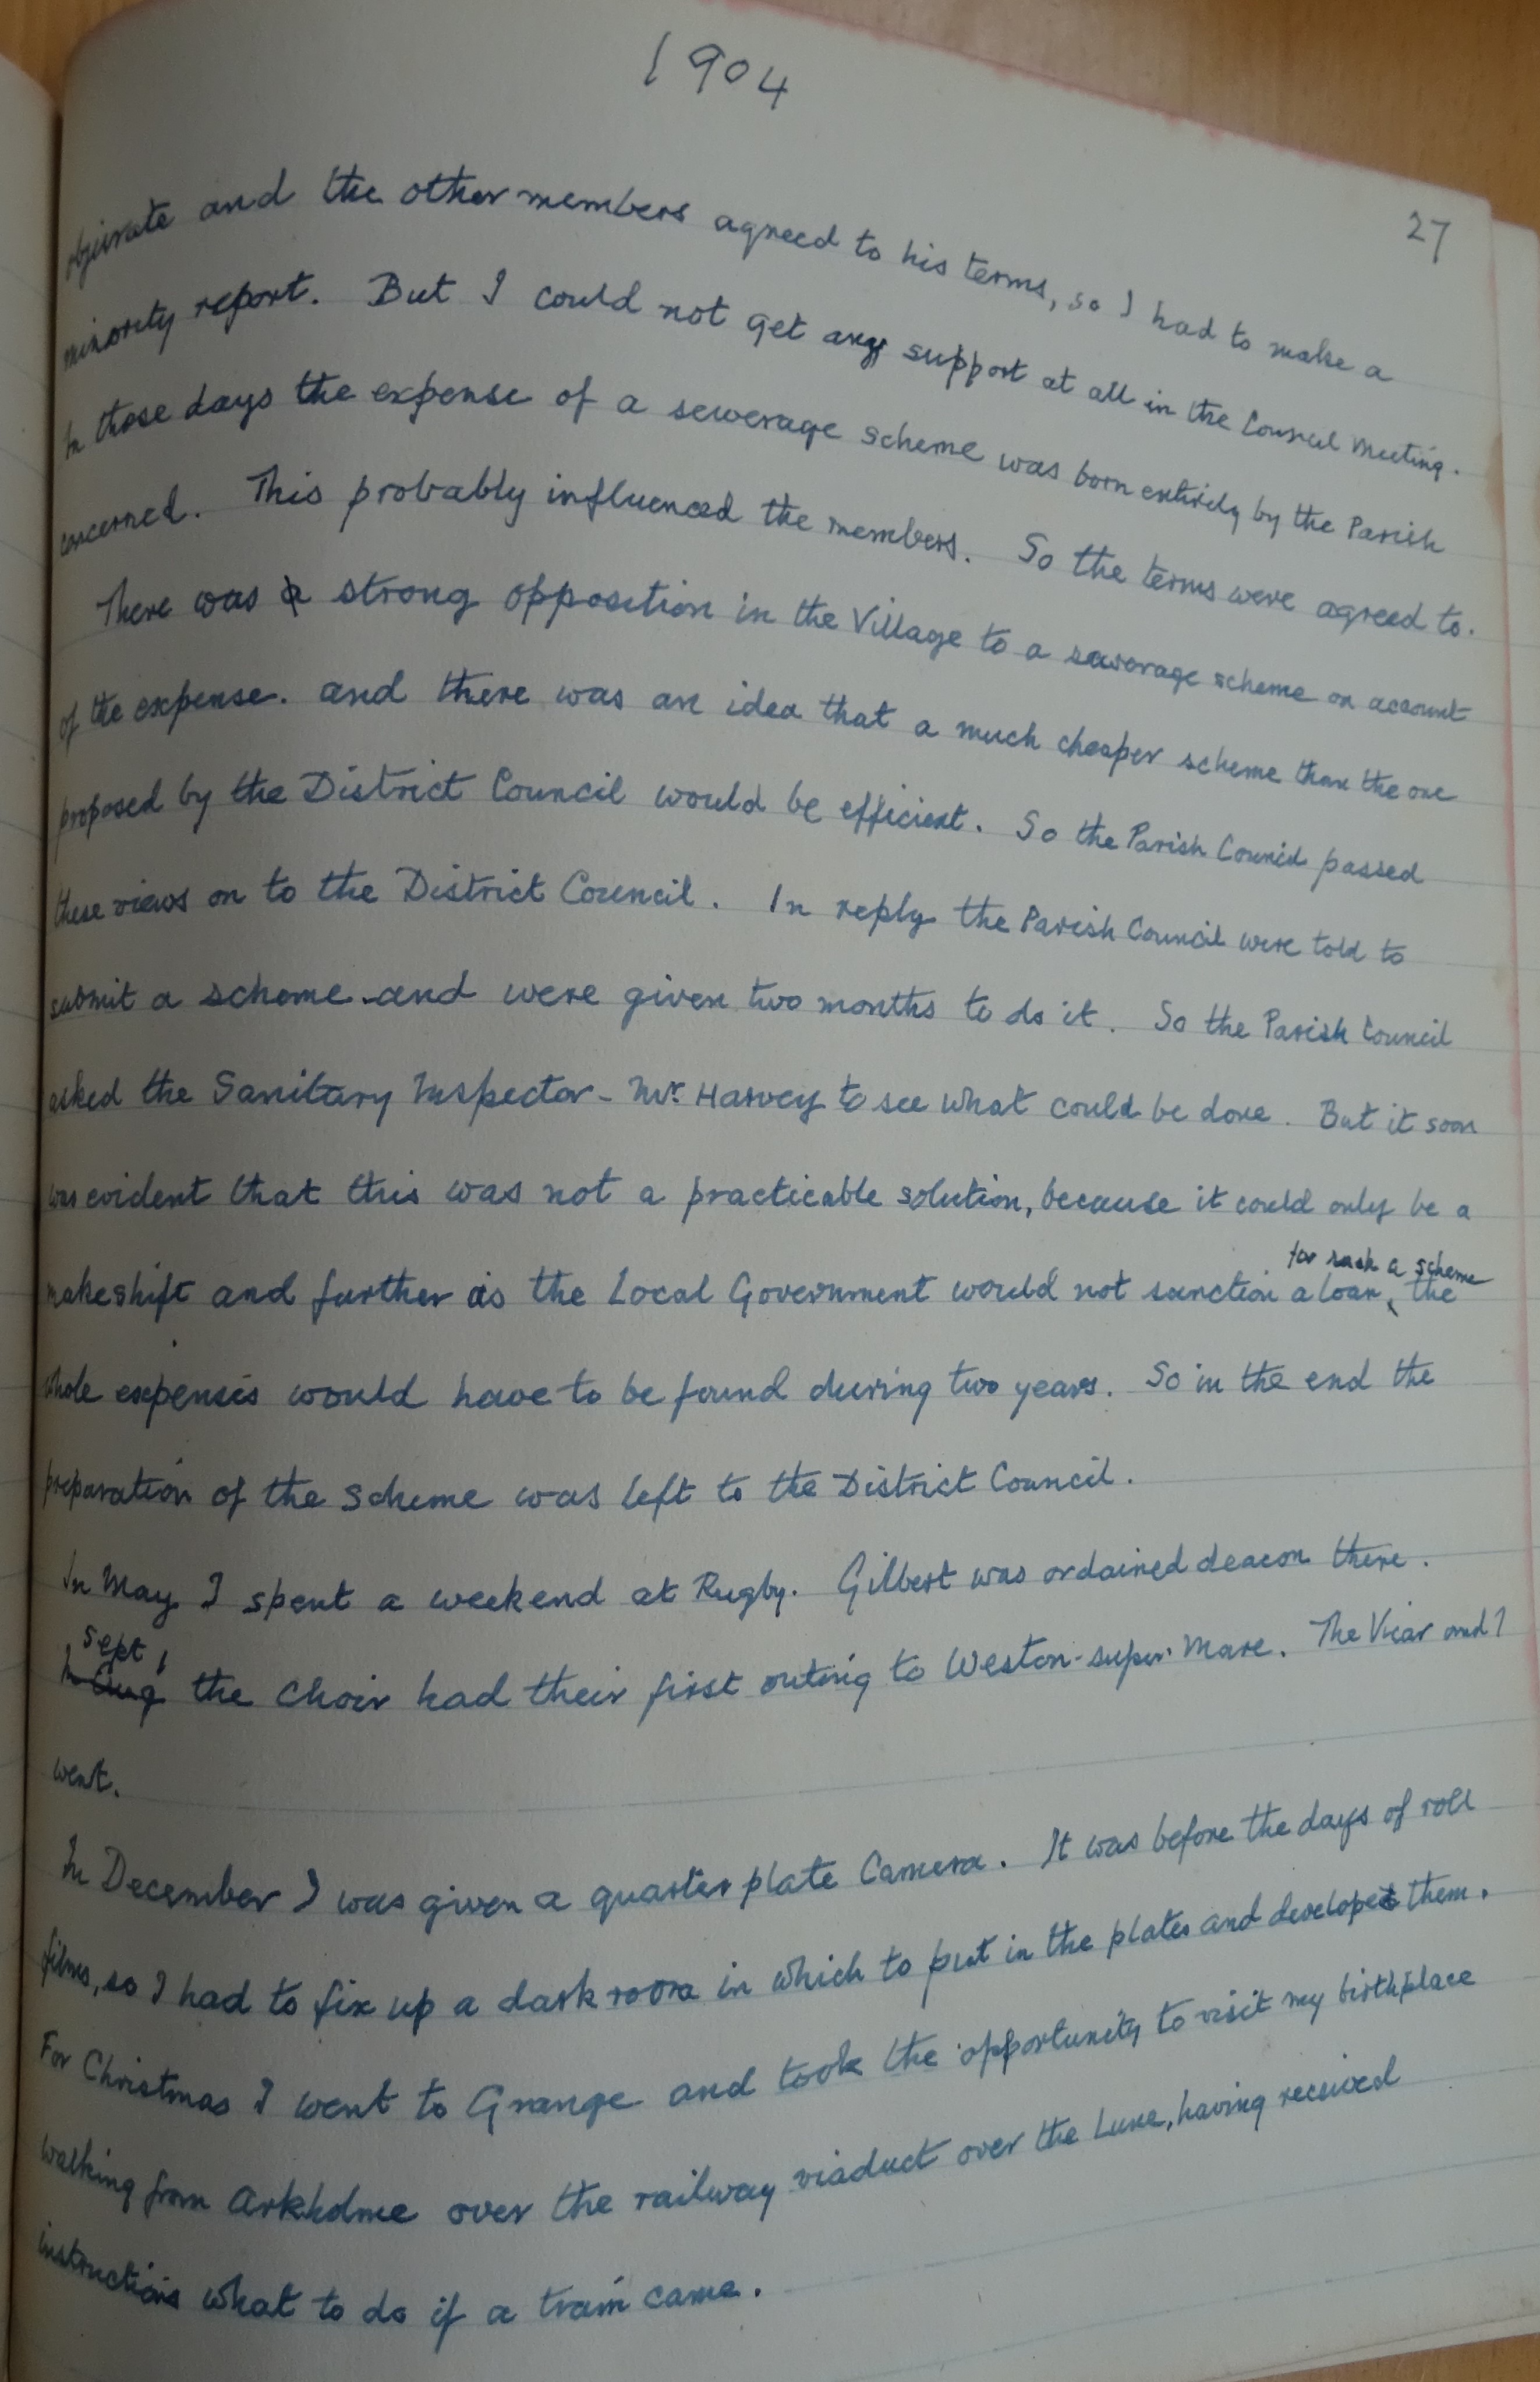 1904
27
objurate and the other members agreed to his terms, so I had to make a
minority report. But I could not get any support at all in the Council Meeting.
In those days the expense of a sewerage scheme was born entirely by the Parish
concerned. This probably influenced the members. So the terms were agreed to.
There was a strong opposition in the Village to a sewerage scheme on account
of the expense. and there was an idea that a much cheaper scheme than the one
proposed by the District Council would be efficient. So the Parish Council passed
these views on to the District Council. In reply the Parish Council were told to
submit a scheme and were given two months to do it. So the Parish Council
asked the Sanitary Inspector - Mr. Harvey to see what could be done. But it soon
was evident that this was not a practicable solution, because it could only be a
for such a scheme
makeshift and further as the Local Government would not sanction a loan, the
whole expenses would have to be found during two years. So in the end the
preparation of the scheme was left to the District Council.
In May I spent a weekend at Rugby. Gilbert was ordained deacon there.
Sept,
In Aug the choir had their first outing to Weston-super-Mare. The Vicar and I
went.
In December I was given a quarter plate Camera. It was before the days of roll
films, so I had to fix up a dark room in which to put in the plates and develope them.
For Christmas I went to Grange and took the opportunity to visit my birthplace
walking from Arkholme over the railway viaduct over the Lune, having received
instructions what to do if a train came.